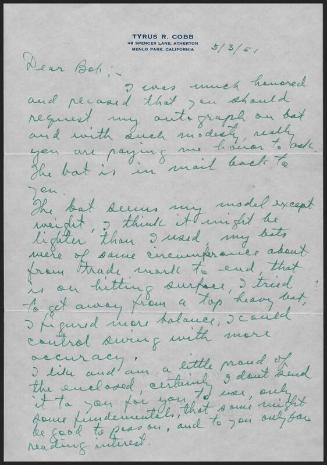 TYRUS R. COBB
48 SPENCER LANE, ATHERTON
MENLO PARK, CALIFORNIA
5/3/61
Dear Bob;-
I was much honored
and that you should
request my autograph on bat
and with such modesty, really
you are paying me honor to ask.
The bat is in mail back to
you.
The bat seems my model except
weight, I think it might be
lighter than I used, my bats
were of same circumference about
from trade mark to end that
is on hitting surface, I tried
to get away from a top heavy bat,
I figured more balance, I could
control swing with more
accuracy.
I like and am a little proud of
the enclosed, certainly I dont send
it to you for you to use, only
some fundamentals, that some might
be good to person, and to you only for
reading interest.